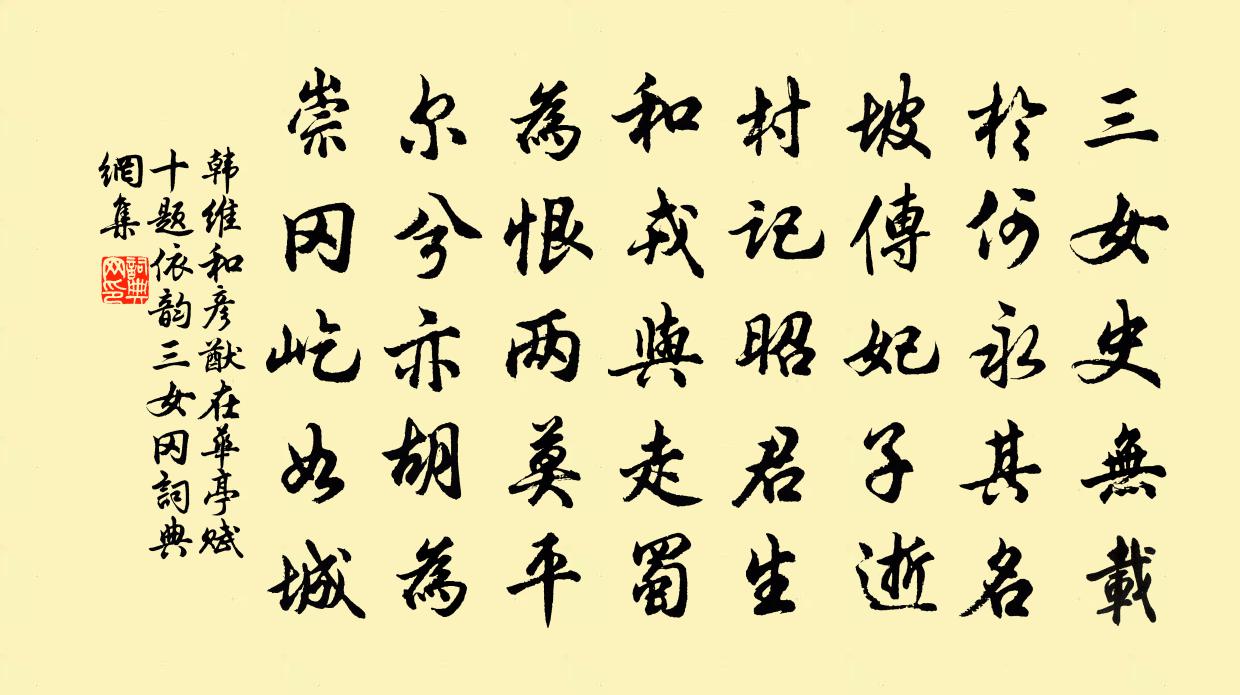 三女史無載
於何永其名
坡傳妃子逝
村記昭君生
和戎與走蜀
為恨两莫平
尔兮亦胡為
崇冈屹如城
韩维和彦猷在華亭赋
十题依韵三女冈詞典
網集
詞典網印